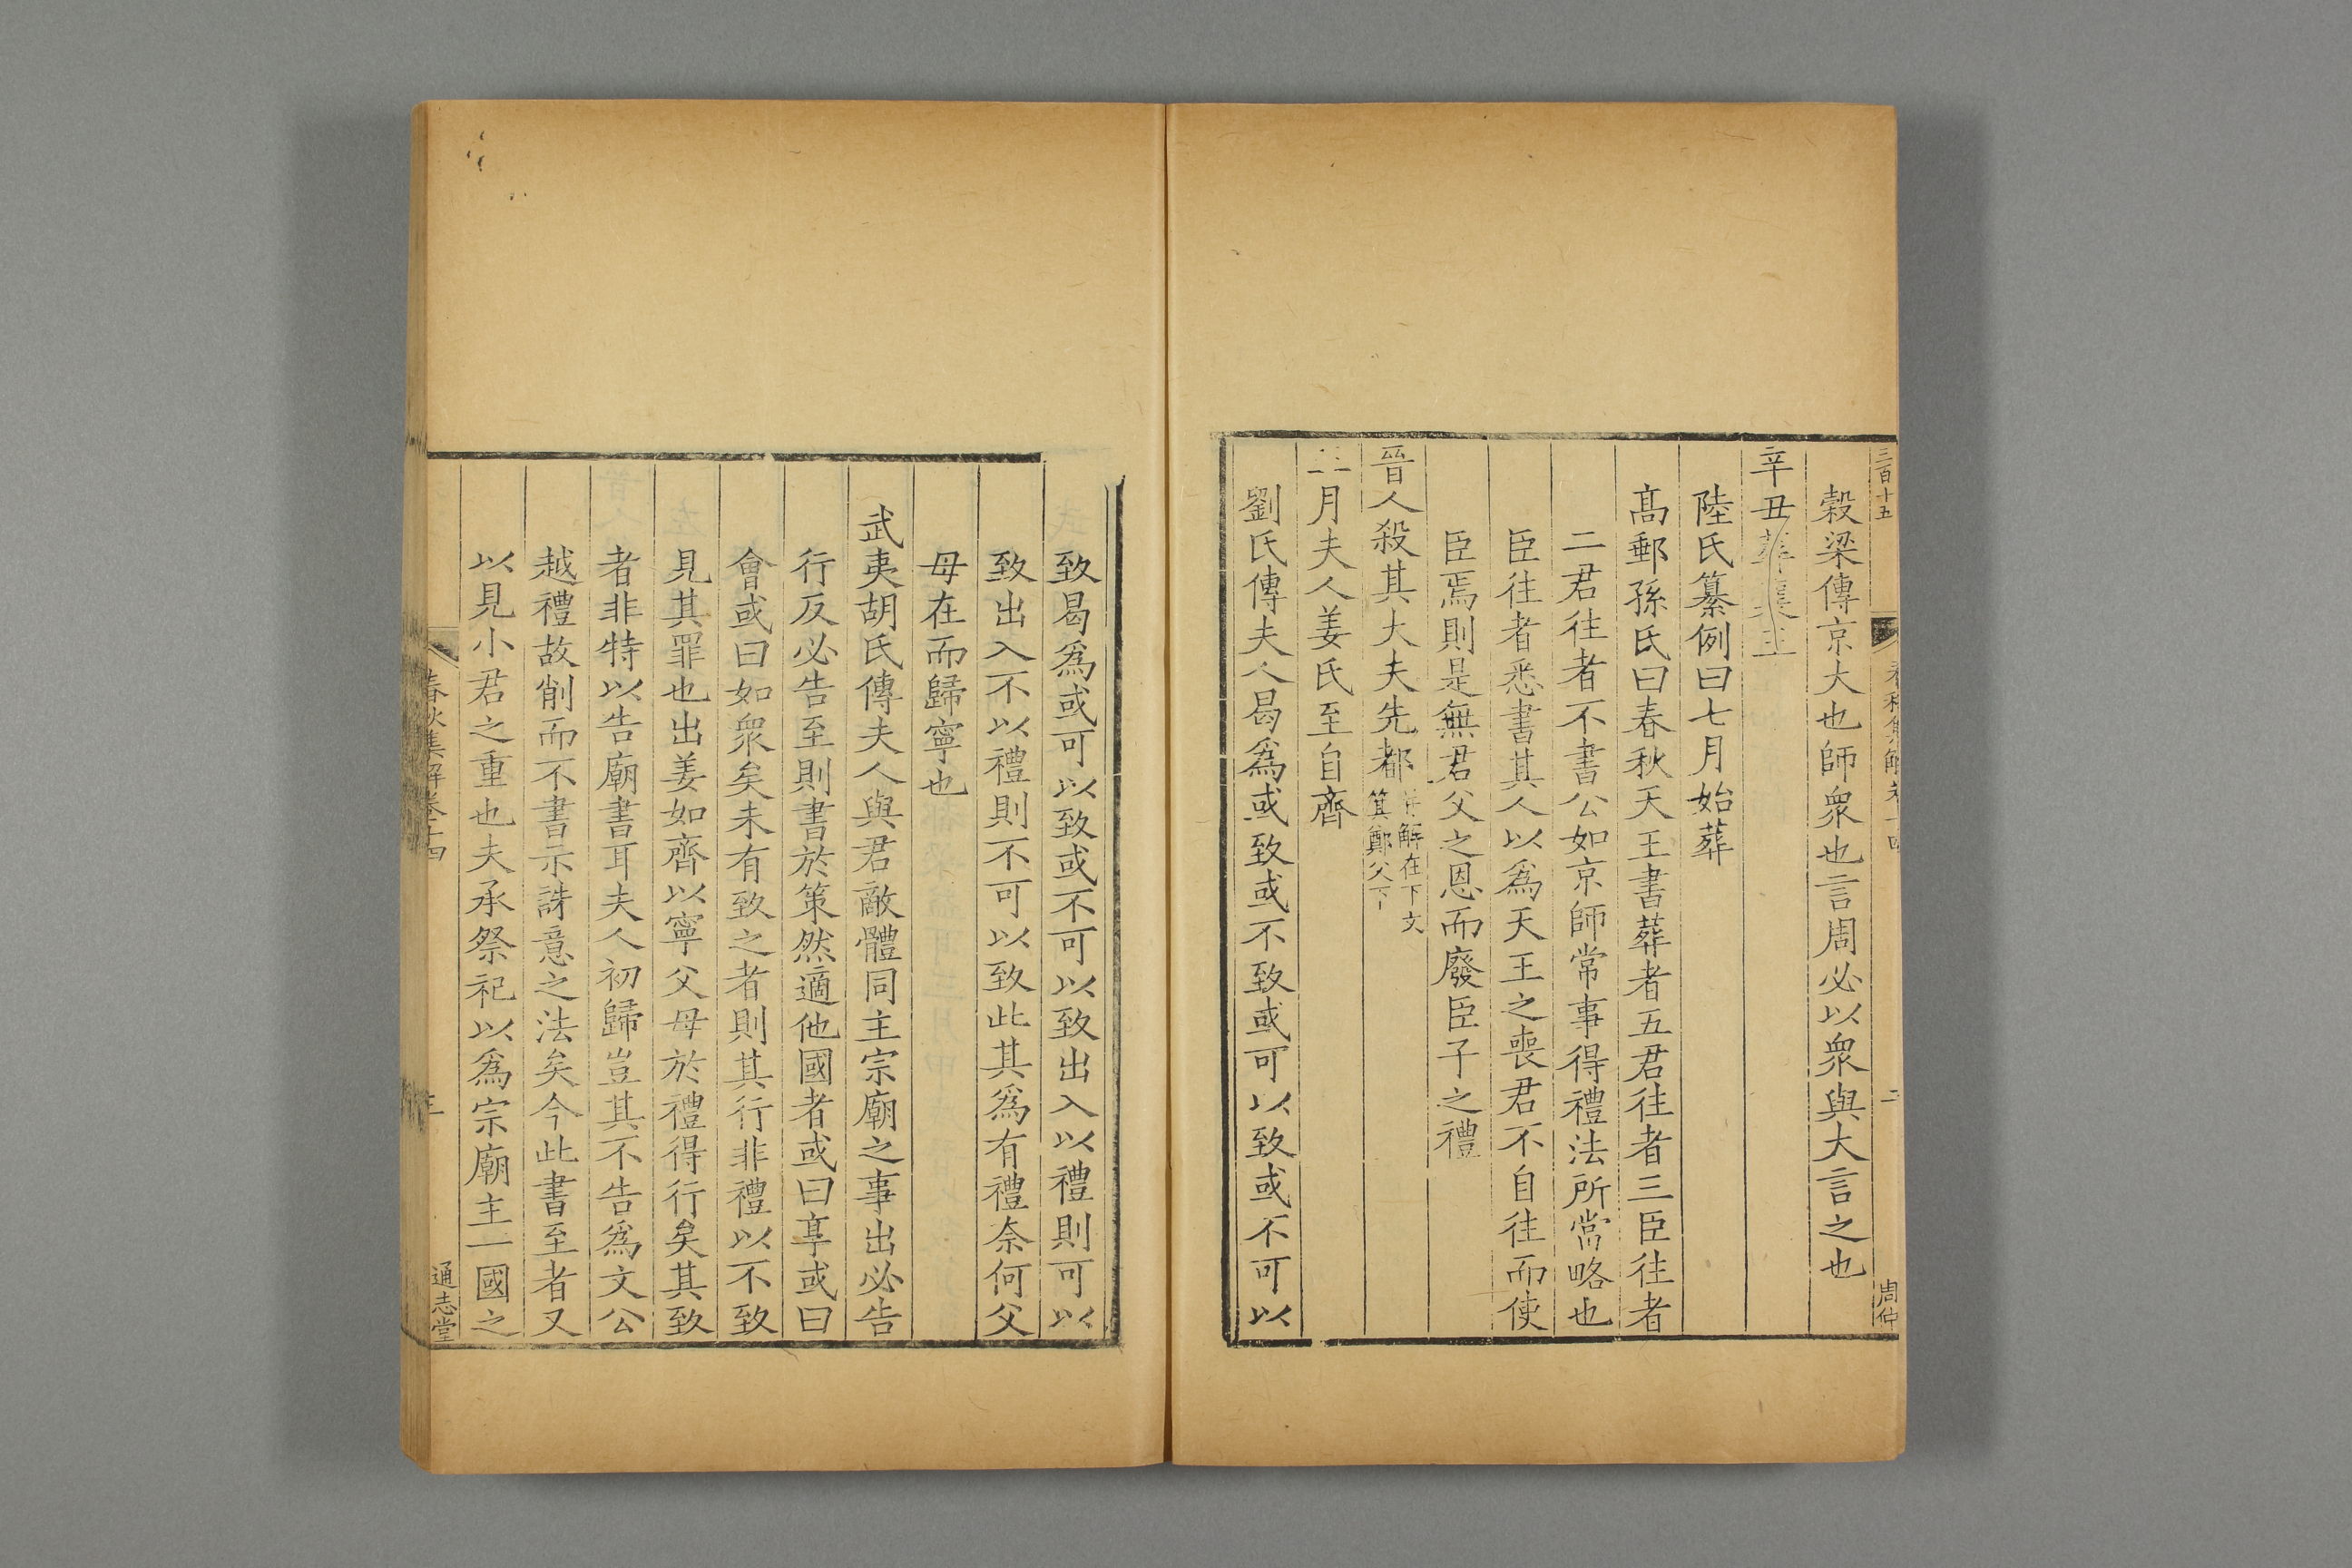 三百十五
春秋集解卷十四
二
周仲
穀梁傳京大也師衆也言周必以衆與大言之也
辛丑葬襄王
陸氏纂例曰七月始葬
髙郵孫氏曰春秋天王書葬者五君往者三臣往者
二君往者不書公如京師常事得禮法所當略也
臣往者悉書其人以爲天王之喪君不自往而使
臣焉則是無君父之恩而廢臣子之禮
晉人殺其大夫先都
解在下文
箕鄭父下
月夫人姜氏至自齊
劉氏傳夫人曷爲或致或不致或可以致或不可以
致曷爲或可以致或不可以致出入以禮則可以
致出入不以禮則不可以致此其爲有禮奈何父
母在而歸寧也
武夷胡氏傳夫人與君敵體同主宗廟之事出必告
行反必告至則書於策然適他國者或曰享或曰
會或曰如衆矣未有致之者則其行非禮以不致
見其罪也出姜如齊以寧父母於禮得行矣其致
者非特以告廟書耳夫人初歸豈其不告爲文公
越禮故削而不書示誅意之法矣今此書至者又
以見小君之重也夫承祭祀以爲宗廟主一國之
春秋集解卷十四
三
通志堂